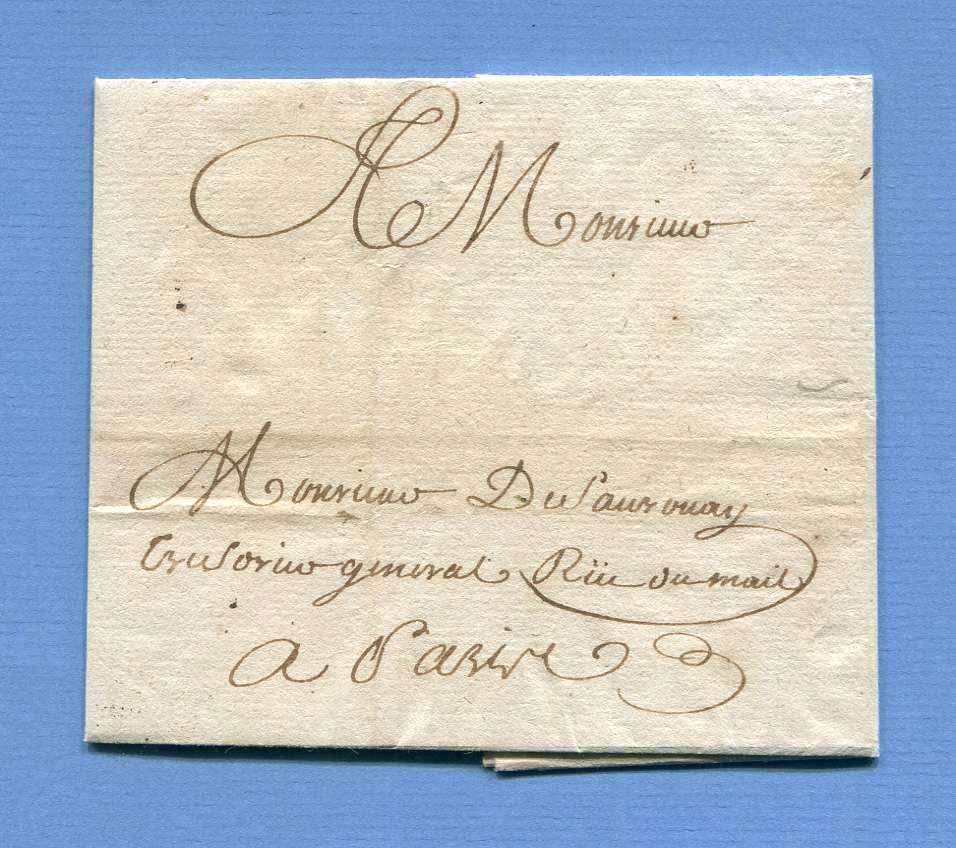 A Monsieur
Monsieur De Sauronay
Tresorier general Rüe du mail
a Paris